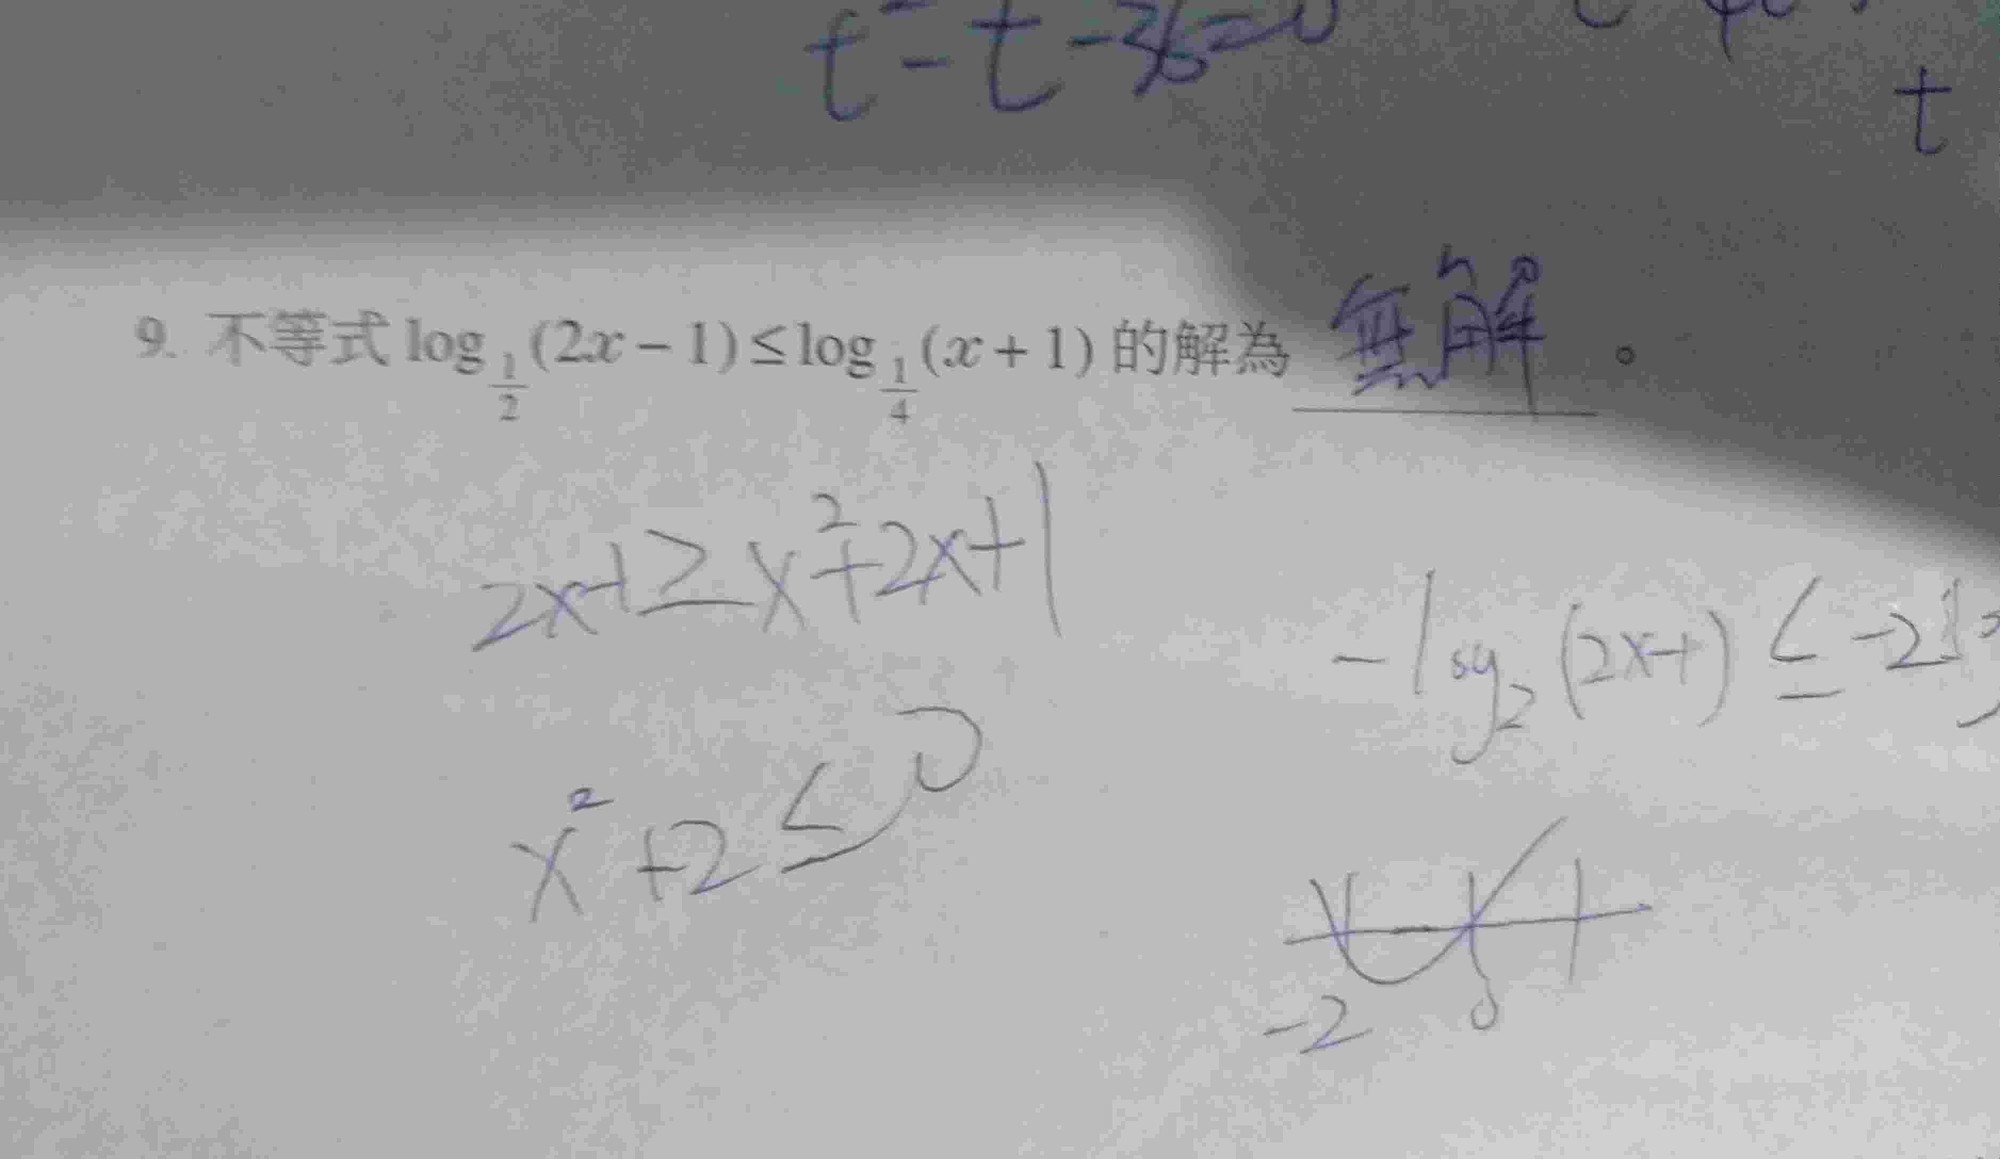 t² - t - 36 = 0
t
9. 不等式 log_{1/2}(2x-1) ≤ log_{1/4}(x+1) 的解為 無解 。
2x-1 ≥ x²+2x+1
-log₂(2x-1) ≤ -2
x²+2 ≤ 0
-2 0